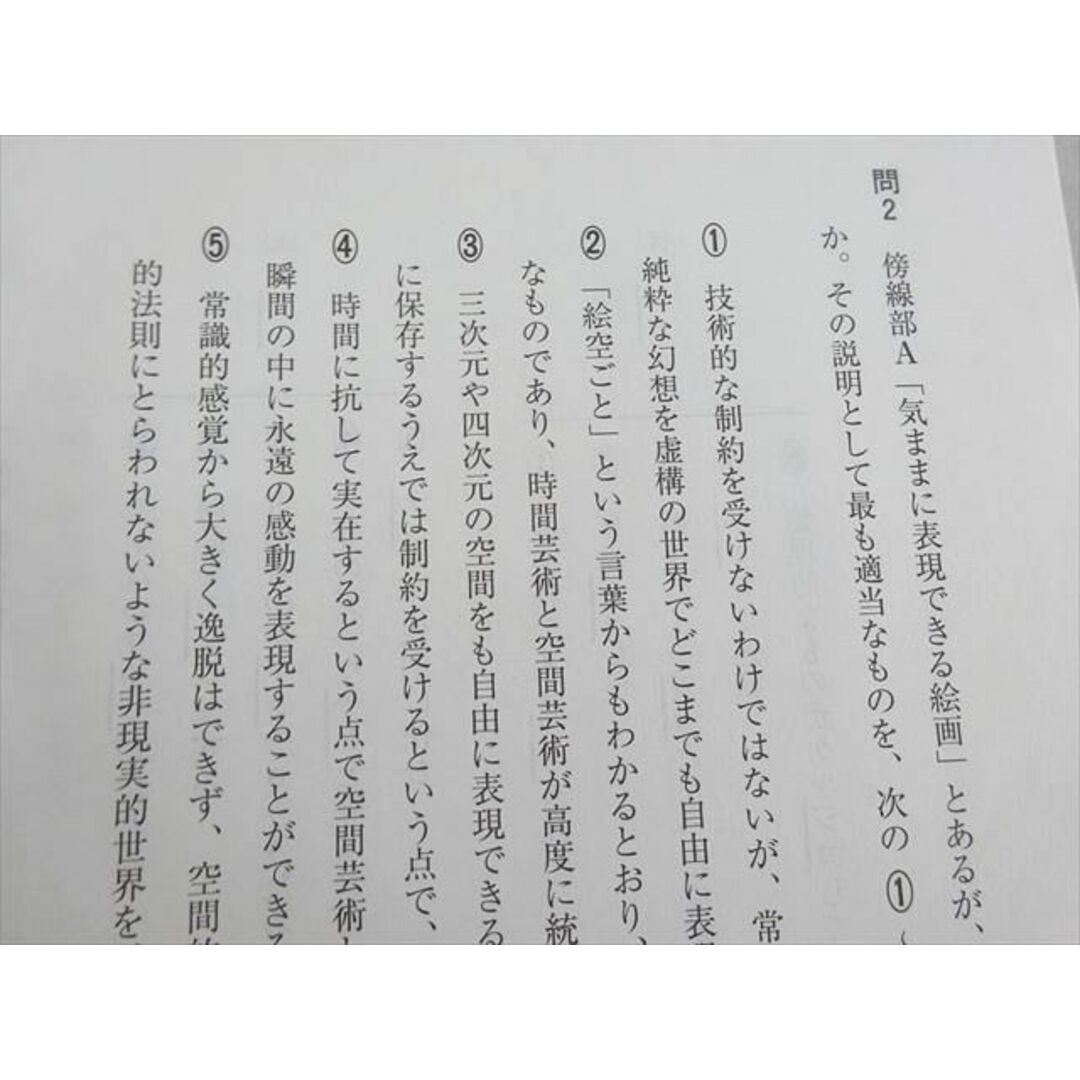 問2 傍線部A「気ままに表現できる絵画」とあるが、
か。その説明として最も適当なものを、次の①〜
① 技術的な制約を受けないわけではないが、常
純粋な幻想を虚構の世界でどこまでも自由に表
② 「絵空ごと」という言葉からもわかるとおり、
なものであり、時間芸術と空間芸術が高度に統
③ 三次元や四次元の空間をも自由に表現できる
に保存するうえでは制約を受けるという点で、
④ 時間に抗して実在するという点で空間芸術
瞬間の中に永遠の感動を表現することができ
⑤ 常識的感覚から大きく逸脱はできず、空間
的法則にとらわれないような非現実的世界を